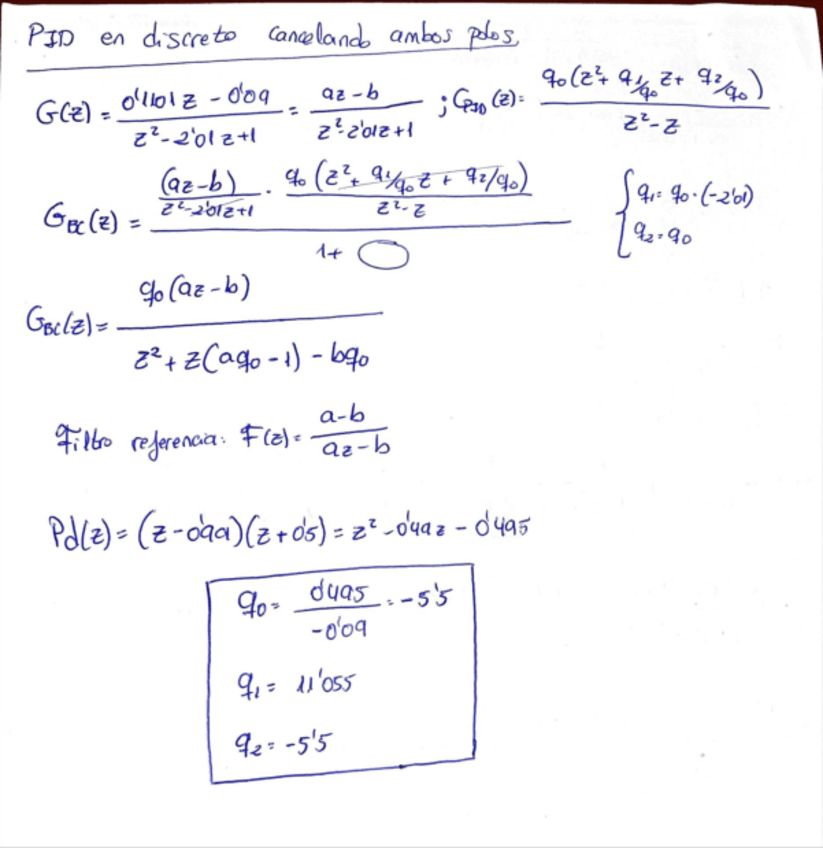 PID en discreto cancelando ambos polos
G(z) = 0'1101z - 0'09 / z² - 2'01z + 1 = az - b / z² - 2'01z + 1 ; C_PID(z) = q₀(z² + q₁/q₀ z + q₂/q₀) / z² - z
G_BC(z) = (az - b) / z² - 2'01z + 1 · q₀(z² + q₁/q₀ z + q₂/q₀) / z² - z / 1+ { q₁ = q₀·(-2'01)
q₂ = q₀
G_BC(z) = q₀(az - b) / z² + z(aq₀ - 1) - bq₀
Filtro referencia: F(z) = a - b / az - b
Pd(z) = (z - 0'99)(z + 0'5) = z² - 0'49z - 0'495
q₀ = 0'495 / -0'09 = -5'5
q₁ = 11'055
q₂ = -5'5